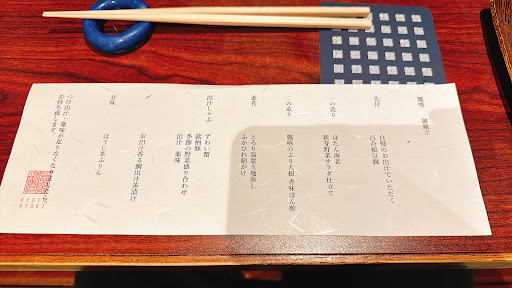 瓢喜 御献立
先付
自慢のお出汁でいただく
百合根豆腐
一の造り
ぼたん海老
新芽野菜サラダ仕立て
二の造り
瓢喜のぶり大根 香味ぽん酢
蓋肴
とろり湯葉と地蒸し
ふかひれ餡がけ
出汁しゃぶ
ずわい蟹
銘柄豚
季節の野菜盛り合わせ
出汁 薬味
お出汁香る鯛出汁茶漬け
甘味
ほうじ茶ぷりん
つけ出汁・薬味が足りなくなり
お持ち致します。
KYOT
HYOKI